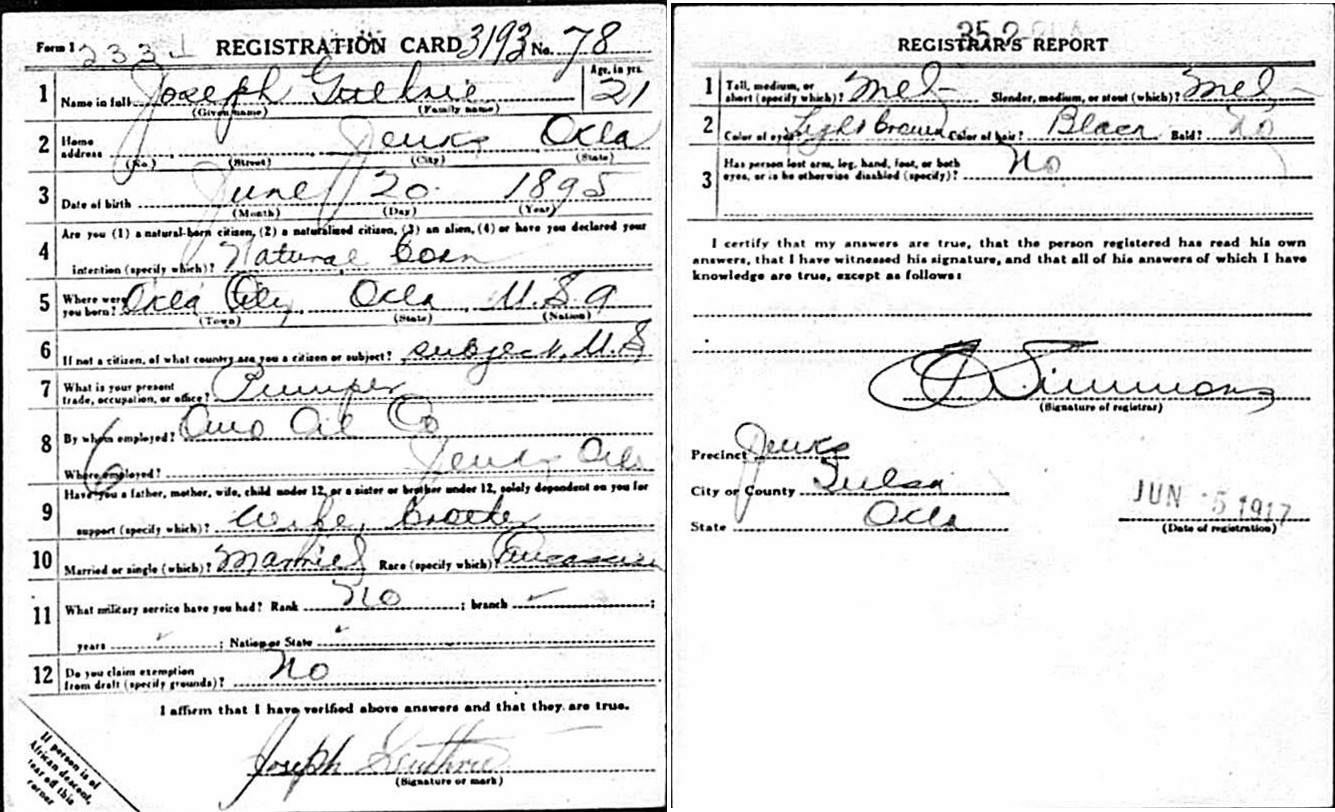 Form 1 2331 REGISTRATION CARD 3193 No. 78
1 Name in full Joseph Guthrie Age, in yrs. 21
(Given name) (Family name)
2 Home address Jenks Okla
(No.) (Street) (City) (State)
3 Date of birth June 20 1895
(Month) (Day) (Year)
4 Are you (1) a natural-born citizen, (2) a naturalized citizen, (3) an alien, (4) or have you declared your
intention (specify which)? Natural born
5 Where were you born? Okla City Okla U.S.a
(Town) (State) (Nation)
6 If not a citizen, of what country are you a citizen or subject? subject, U.S
7 What is your present trade, occupation, or office? Pumper
8 By whom employed? Oil Co
Where employed? Jenks Okla
9 Have you a father, mother, wife, child under 12, or a sister or brother under 12, solely dependent on you for
support (specify which)? Wife, Brother
10 Married or single (which)? Married Race (specify which)? Caucasian
11 What military service have you had? Rank No ; branch ;
years ; Nation or State
12 Do you claim exemption from draft (specify grounds)? No
I affirm that I have verified above answers and that they are true.
Joseph Guthrie
(Signature or mark)
If person is of
African descent,
tear off this
corner
35 2
REGISTRAR'S REPORT
1 Tall, medium, or short (specify which)? Med Slender, medium, or stout (which)? Med
2 Color of eyes? Light brown Color of hair? Black Bald? No
3 Has person lost arm, leg, hand, foot, or both eyes, or is he otherwise disabled (specify)? No
I certify that my answers are true, that the person registered has read his own
answers, that I have witnessed his signature, and that all of his answers of which I have
knowledge are true, except as follows:
Simmons
(Signature of registrar)
Precinct Jenks
City or County Tulsa
State Okla
JUN 5 1917
(Date of registration)